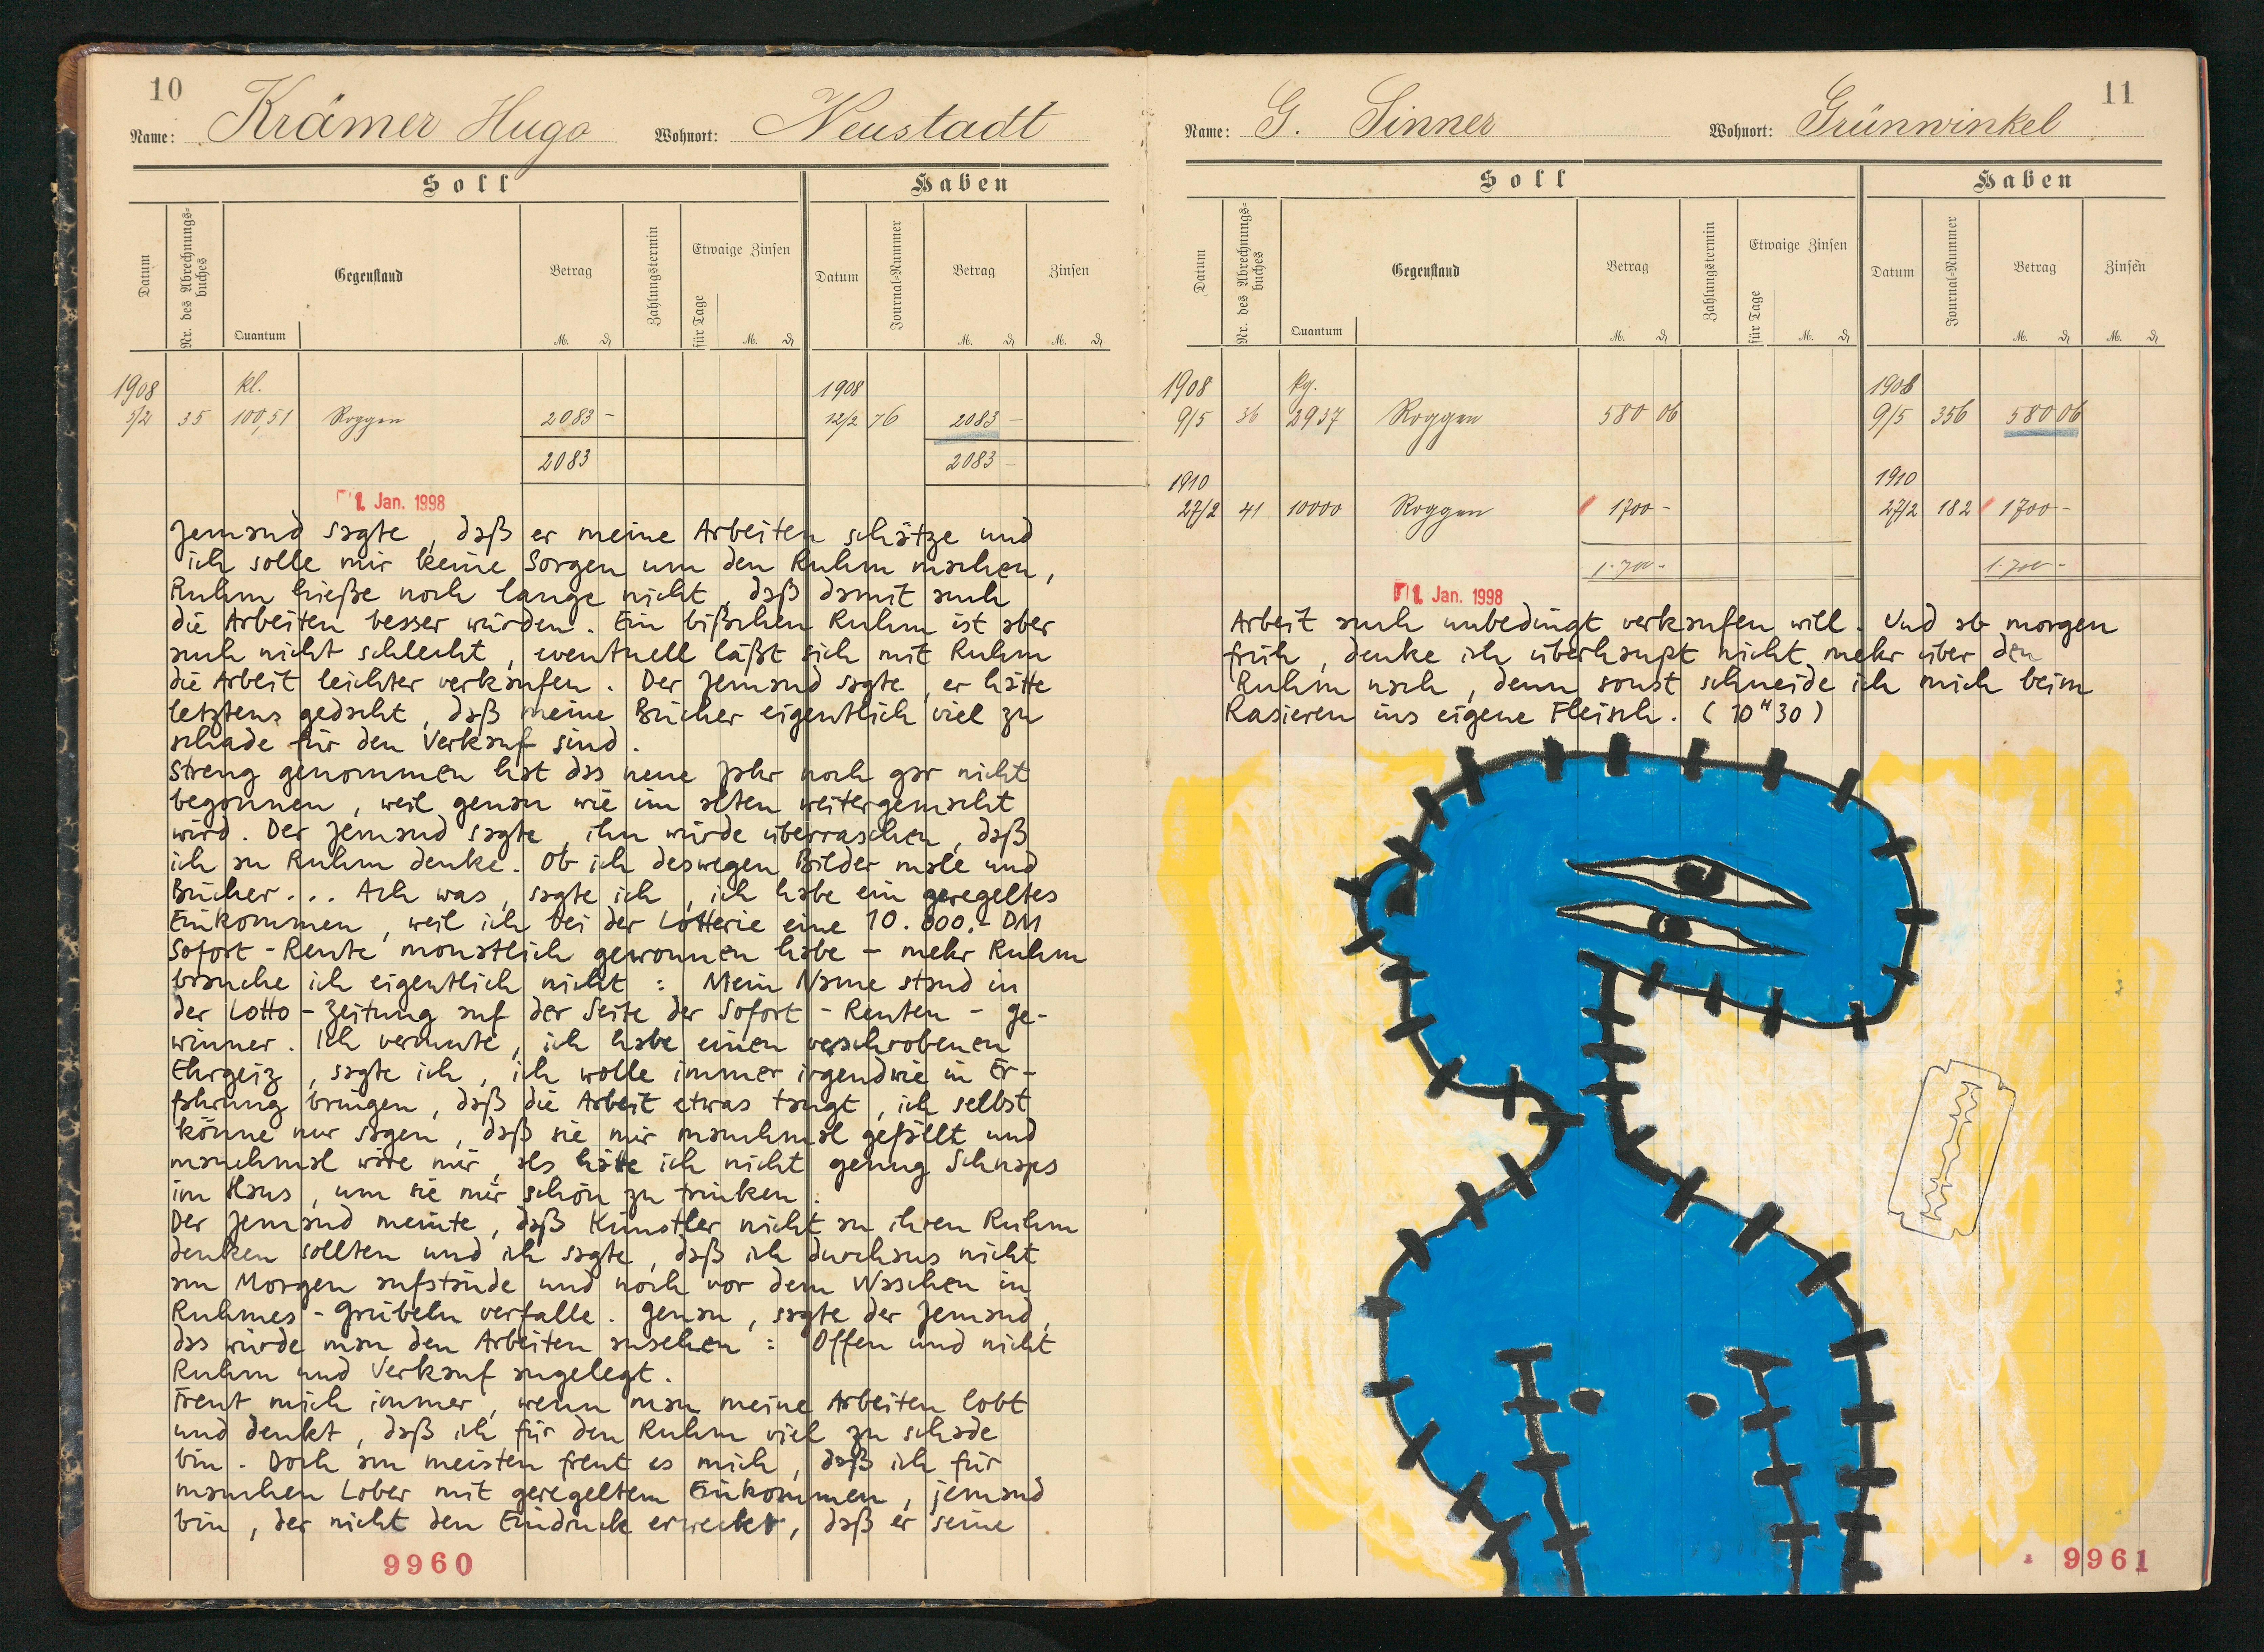 10
Name: Krämer Hugo Wohnort: Neustadt
Soll Haben
Datum Nr. des Abrechnungs-buches Quantum Gegenstand Betrag Zahlungstermin Etwaige Zinsen für Tage Datum Journal-Nummer Betrag Zinsen
M. ₰ M. ₰ M. ₰ M. ₰
1908 kl. 1908
5/2 35 100,51 Roggen 2083 – 12/2 76 2083 –
2083 2083 –
1. Jan. 1998
Jemand sagte, daß er meine Arbeiten schätze und
ich solle mir keine Sorgen um den Ruhm machen,
Ruhm hieße noch lange nicht, daß damit auch
die Arbeiten besser würden. Ein bißchen Ruhm ist aber
auch nicht schlecht, eventuell läßt sich mit Ruhm
die Arbeit leichter verkaufen. Der Jemand sagte, er hätte
letztens gedacht, daß meine Bücher eigentlich viel zu
schade für den Verkauf sind.
Streng genommen hat das neue Jahr noch gar nicht
begonnen, weil genau wie im alten weitergemacht
wird. Der Jemand sagte, ihn würde überraschen, daß
ich an Ruhm denke. Ob ich deswegen Bilder male und
Bücher... Ach was, sagte ich, ich habe ein geregeltes
Einkommen, weil ich bei der Lotterie eine 10.000.- DM
Sofort-Rente monatlich gewonnen habe – mehr Ruhm
brauche ich eigentlich nicht: Mein Name stand in
der Lotto-Zeitung auf der Seite der Sofort-Renten-Ge-
winner. Ich vermute, ich habe einen verschrobenen
Ehrgeiz, sagte ich, ich wolle immer irgendwie in Er-
fahrung bringen, daß die Arbeit etwas taugt, ich selbst
könne nur sagen, daß sie mir manchmal gefällt und
manchmal wäre mir, als hätte ich nicht genug Schnaps
im Haus, um sie mir schön zu trinken.
Der Jemand meinte, daß Künstler nicht an ihren Ruhm
denken sollten und ich sagte, daß ich durchaus nicht
am Morgen aufstünde und noch vor dem Waschen in
Ruhmes-Grübeln verfalle. Genau, sagte der Jemand,
das würde man den Arbeiten ansehen: Offen und nicht
Ruhm und Verkauf angelegt.
Freut mich immer, wenn man meine Arbeiten lobt
und denkt, daß ich für den Ruhm viel zu schade
bin. Doch am meisten freut es mich, daß ich für
manchen Lober mit geregeltem Einkommen, jemand
bin, der nicht den Eindruck erweckt, daß er seine
9960
11
Name: G. Sinner Wohnort: Grünwinkel
Soll Haben
Datum Nr. des Abrechnungs-buches Quantum Gegenstand Betrag Zahlungstermin Etwaige Zinsen für Tage Datum Journal-Nummer Betrag Zinsen
M. ₰ M. ₰ M. ₰ M. ₰
1908 kg. 1908
9/5 36 2937 Roggen 580 06 9/5 356 580 06
1910 1910
27/2 41 10000 Roggen 1700 – 27/2 182 1700 –
1.700 – 1.700 –
1. Jan. 1998
Arbeit auch unbedingt verkaufen will. Und ab morgen
früh, denke ich überhaupt nicht mehr über den
Ruhm nach, denn sonst schneide ich mich beim
Rasieren ins eigene Fleisch. (10 H 30)
9961